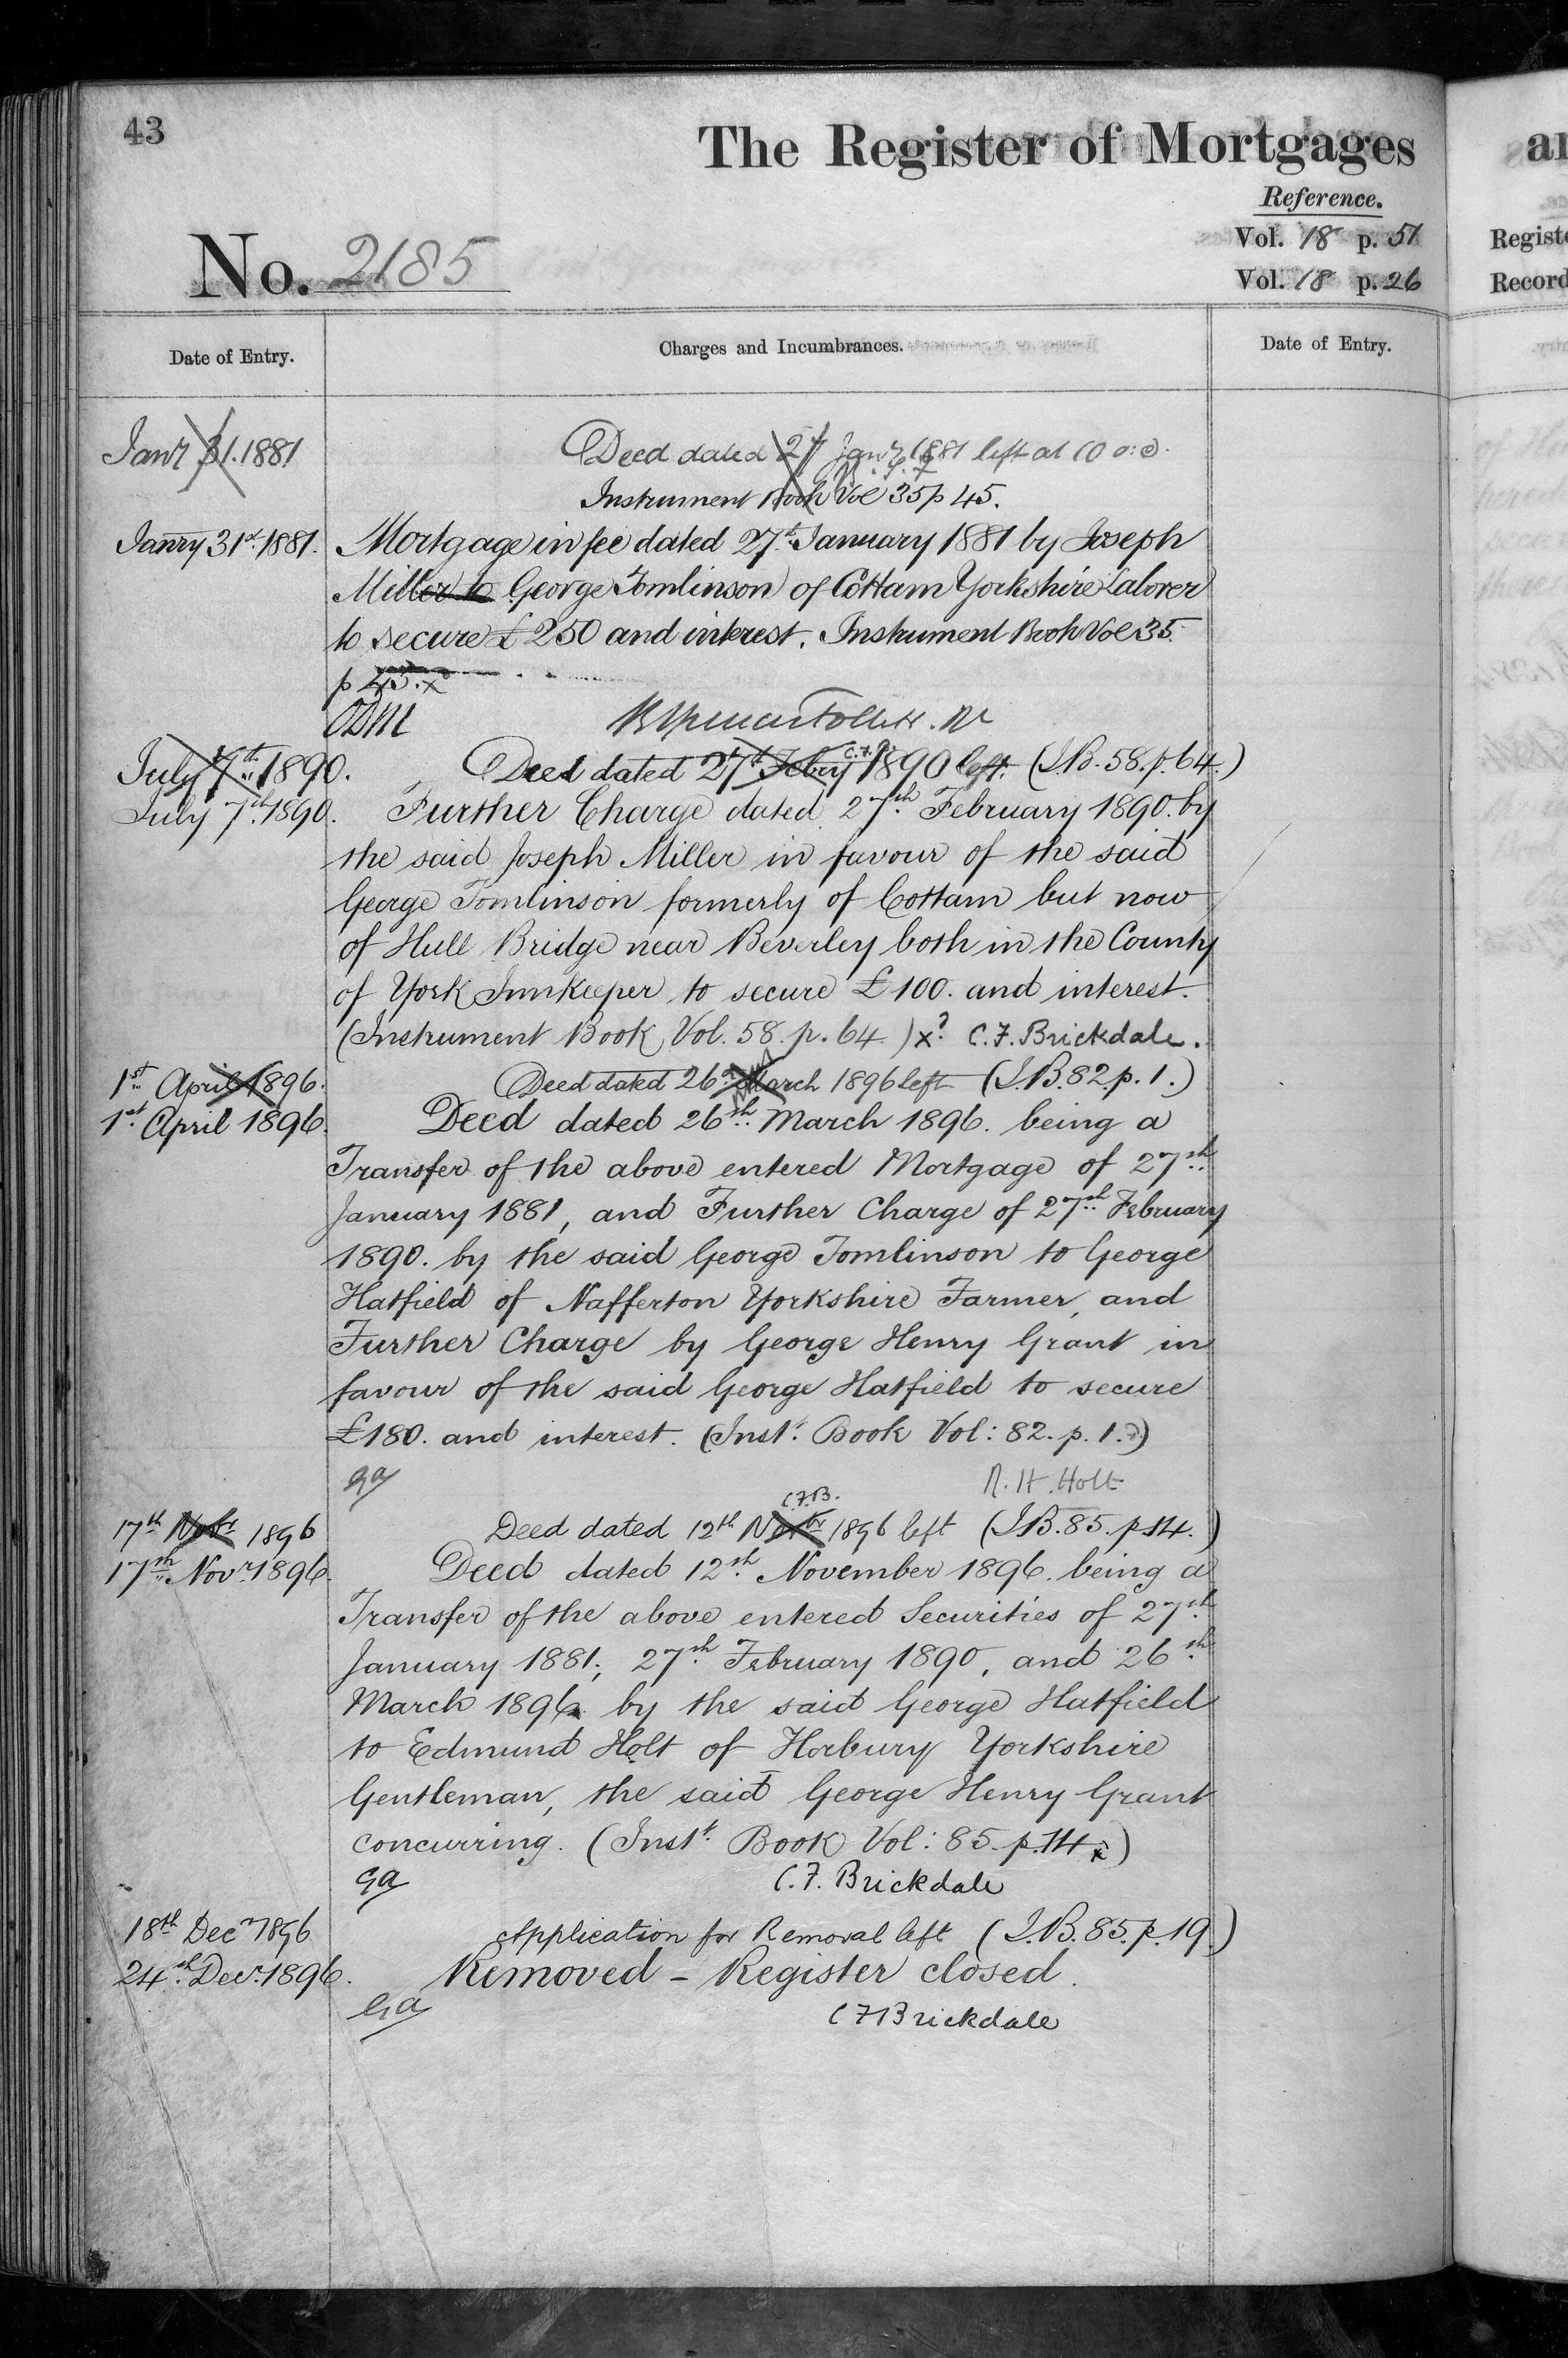 43
The Register of Mortgages
Reference.
Vol. 18 p. 51
No. 2185
Vol. 18 p. 26
Date of Entry.
Charges and Incumbrances.
Date of Entry.
Janr 31. 1881
Deed dated 27 Janr 1881 left at 10
Instrument Book Vol 35 p 45.
Janry 31st 1881.
Mortgage in fee dated 27th January 1881 by Joseph
Miller to George Tomlinson of Cottam Yorkshire Laborer
to secure £250 and interest. Instrument Book Vol 35.
p 45.x
July 7th 1890.
Deed dated 27th Febry 1890 left. (I.B. 58. p. 64.)
July 7th 1890.
Further Charge dated 27th February 1890. by
the said Joseph Miller in favour of the said
George Tomlinson formerly of Cottam but now
of Hull Bridge near Beverley both in the County
of York Innkeeper to secure £100. and interest.
(Instrument Book Vol. 58. p. 64.) x? C. F. Brickdale.
1st April 1896.
Deed dated 26th March 1896 left (I.B. 82. p. 1.)
1st April 1896.
Deed dated 26th March 1896. being a
Transfer of the above entered Mortgage of 27th
January 1881, and Further Charge of 27th February
1890. by the said George Tomlinson to George
Hatfield of Nafferton Yorkshire Farmer, and
Further Charge by George Henry Grant in
favour of the said George Hatfield to secure
£180. and interest. (Inst. Book Vol: 82. p. 1.)
Ga
R. H. Holt
C.F.B.
17th Novr 1896
Deed dated 12th Novbr 1896 left (I.B. 85. p 14.)
17th Novr 1896.
Deed dated 12th November 1896. being a
Transfer of the above entered Securities of 27th
January 1881; 27th February 1890, and 26th
March 1896. by the said George Hatfield
to Edmund Holt of Horbury Yorkshire
Gentleman, the said George Henry Grant
concurring. (Instt. Book Vol: 85. p. 14 x)
Ga
C. F. Brickdale
18th Decr 1896
Application for Removal left (I.B. 85. p. 19.)
24th Decr 1896.
Removed - Register closed.
Ga
C F Brickdale
ar
Registe
Record